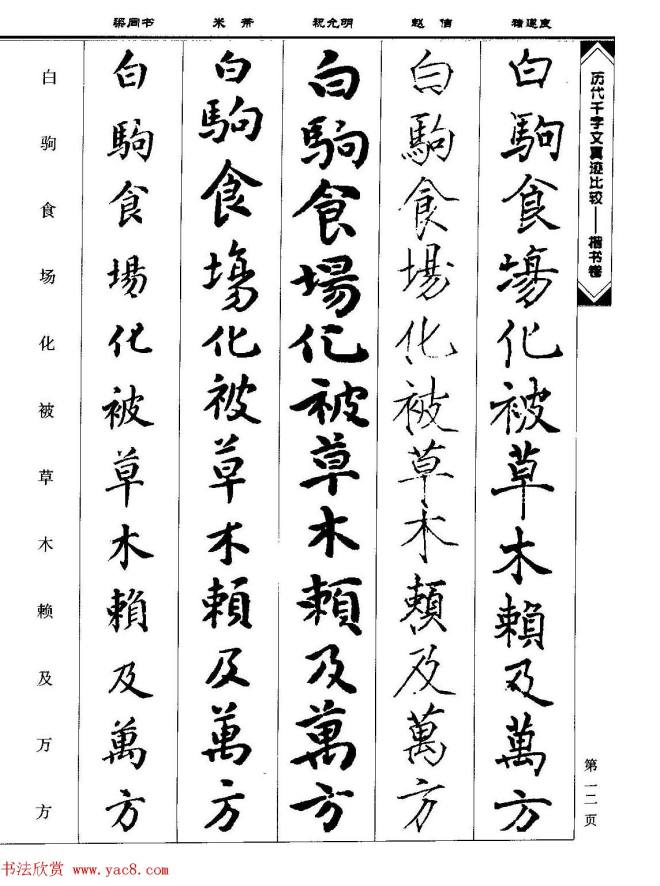 历代千字文真迹比较——楷书卷
第一二页
褚遂良
白駒食塲化被草木賴及萬方
赵佶
白駒食場化被草木賴及萬方
祝允明
白駒食場化被草木賴及萬方
米芾
白駒食塲化被草木賴及萬方
梁同书
白駒食場化被草木賴及萬方
白驹食场化被草木赖及万方
书法欣赏 www.yac8.com